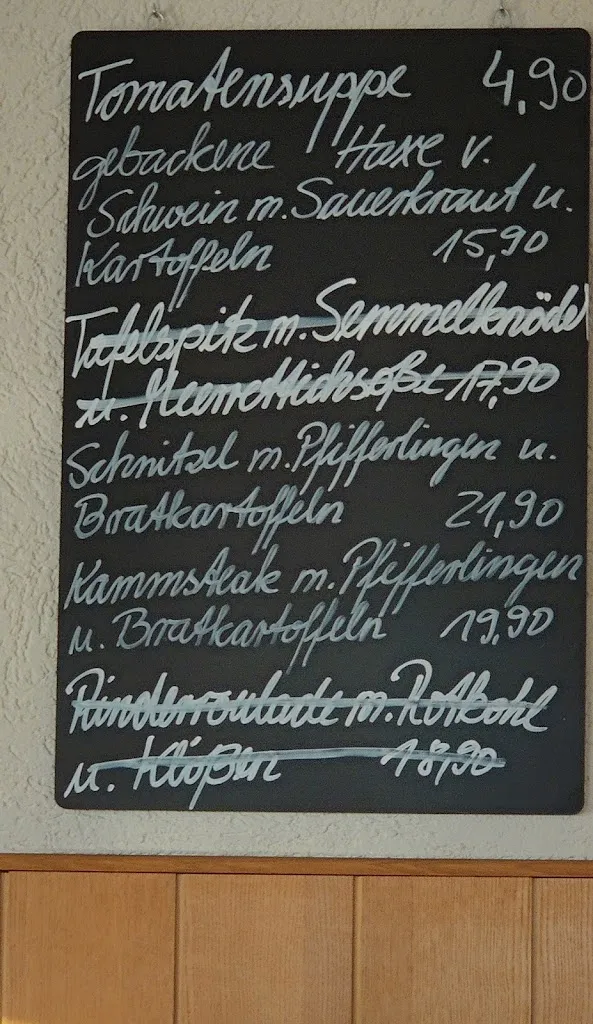 Tomatensuppe 4,90
gebackene Haxe v.
Schwein m. Sauerkraut u.
Kartoffeln 15,90
Tafelspitz m. Semmelknödel
u. Meerrettichsoße 17,90
Schnitzel m. Pfifferlingen u.
Bratkartoffeln 21,90
Kammsteak m. Pfifferlingen
u. Bratkartoffeln 19,90
Rinderroulade m. Rotkohl
u. Klößen 18,90